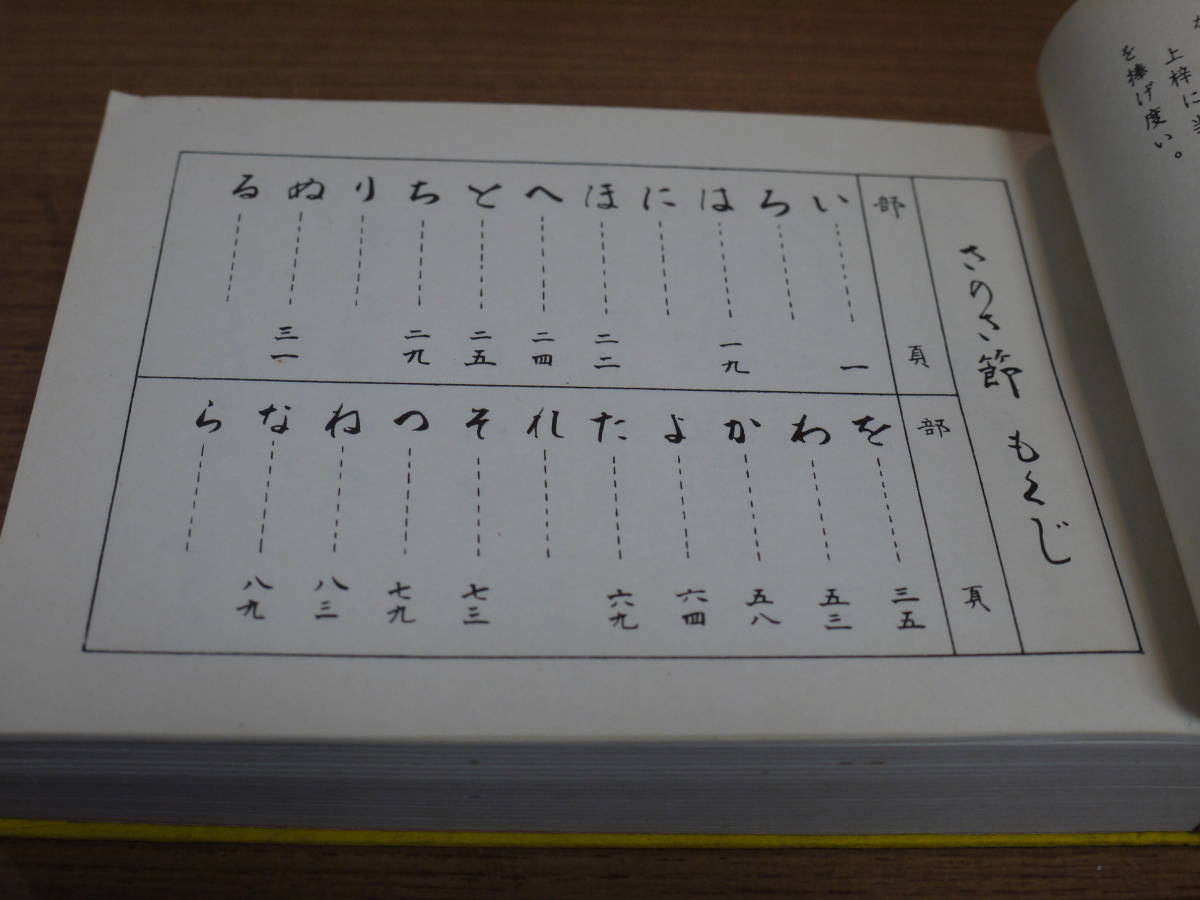 上梓に
を捧げ度い。
さのさ節 もくじ
部 頁
い 一
ろ
は 一九
に
ほ 二二
へ 二四
と 二五
ち 二九
り
ぬ 三一
る
部 頁
を 三五
わ 五三
か 五八
よ 六四
た 六九
れ
そ 七三
つ 七九
ね 八三
な 八九
ら